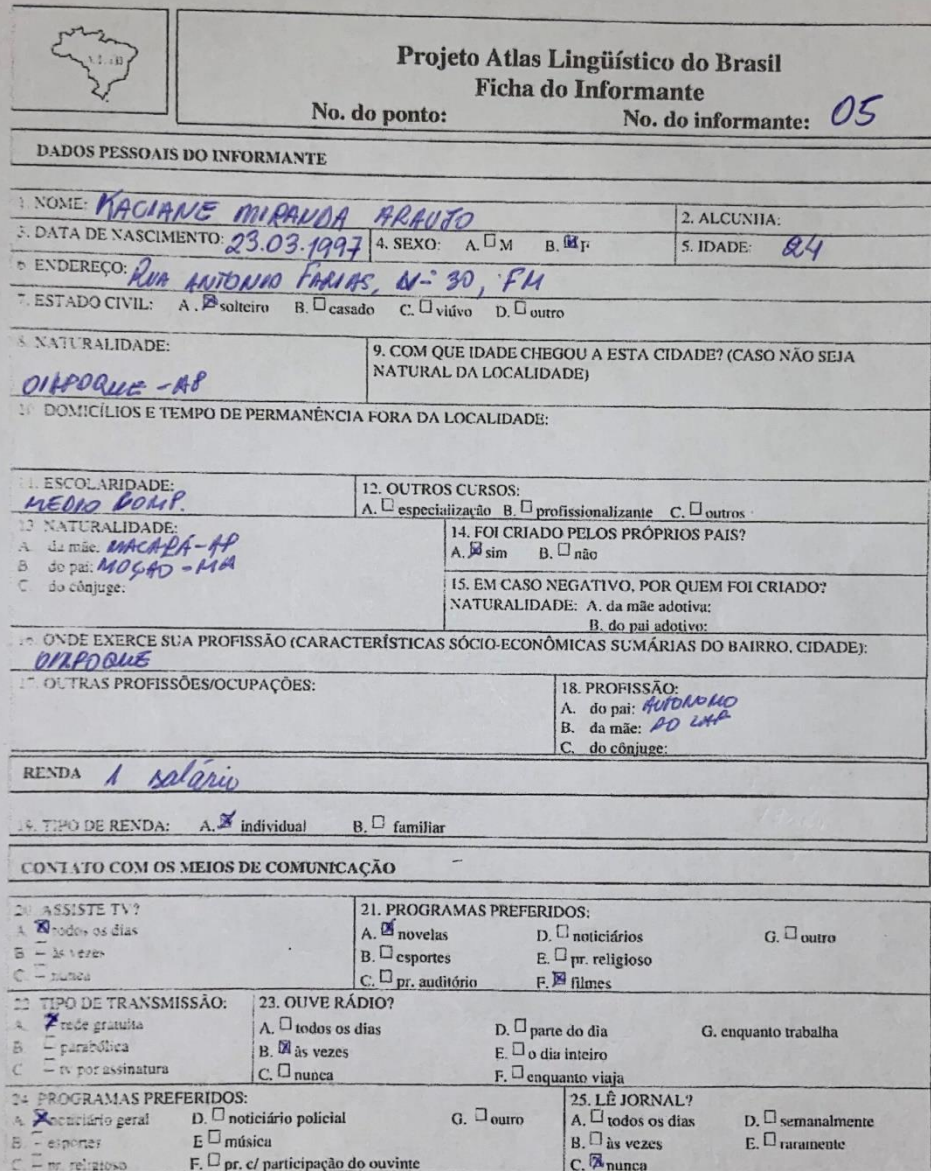 Projeto Atlas Lingüístico do Brasil
Ficha do Informante
No. do ponto: No. do informante: 05
DADOS PESSOAIS DO INFORMANTE
1. NOME: KACIANE MIRANDA ARAUJO
2. ALCUNHA:
3. DATA DE NASCIMENTO: 23.03.1997
4. SEXO: A. ☐ M B. ☒ F
5. IDADE: 24
6 ENDEREÇO: RUA ANTONIO FARIAS, Nº 30, FM
7. ESTADO CIVIL: A. ☒ solteiro B. ☐ casado C. ☐ viúvo D. ☐ outro
8. NATURALIDADE:
OIAPOQUE - AP
9. COM QUE IDADE CHEGOU A ESTA CIDADE? (CASO NÃO SEJA
NATURAL DA LOCALIDADE)
10 DOMICÍLIOS E TEMPO DE PERMANÊNCIA FORA DA LOCALIDADE:
11. ESCOLARIDADE:
MEDIO COMP.
12. OUTROS CURSOS:
A. ☐ especialização B. ☐ profissionalizante C. ☐ outros
13 NATURALIDADE:
A da mãe: MACAPÁ-AP
B do pai: MOÇAO - MA
C do cônjuge:
14. FOI CRIADO PELOS PRÓPRIOS PAIS?
A. ☒ sim B. ☐ não
15. EM CASO NEGATIVO, POR QUEM FOI CRIADO?
NATURALIDADE: A. da mãe adotiva:
B. do pai adotivo:
16. ONDE EXERCE SUA PROFISSÃO (CARACTERÍSTICAS SÓCIO-ECONÔMICAS SUMÁRIAS DO BAIRRO, CIDADE):
OIAPOQUE
17. OUTRAS PROFISSÕES/OCUPAÇÕES:
18. PROFISSÃO:
A. do pai: AUTONOMO
B. da mãe: DO LAR
C. do cônjuge:
RENDA 1 salário
19. TIPO DE RENDA: A. ☒ individual B. ☐ familiar
CONTATO COM OS MEIOS DE COMUNICAÇÃO
20 ASSISTE TV?
A ☒ todos os dias
B ☐ às vezes
C ☐ nunca
21. PROGRAMAS PREFERIDOS:
A. ☒ novelas D. ☐ noticiários G. ☐ outro
B. ☐ esportes E. ☐ pr. religioso
C. ☐ pr. auditório F. ☒ filmes
22 TIPO DE TRANSMISSÃO:
A. ☒ rede gratuita
B ☐ parabólica
C ☐ tv por assinatura
23. OUVE RÁDIO?
A. ☐ todos os dias D. ☐ parte do dia G. enquanto trabalha
B. ☒ às vezes E. ☐ o dia inteiro
C. ☐ nunca F. ☐ enquanto viaja
24 PROGRAMAS PREFERIDOS:
A. ☒ noticiário geral D. ☐ noticiário policial G. ☐ outro
B. ☐ esportes E ☐ música
C ☐ pr. religioso F. ☐ pr. c/ participação do ouvinte
25. LÊ JORNAL?
A. ☐ todos os dias D. ☐ semanalmente
B. ☐ às vezes E. ☐ raramente
C. ☒ nunca